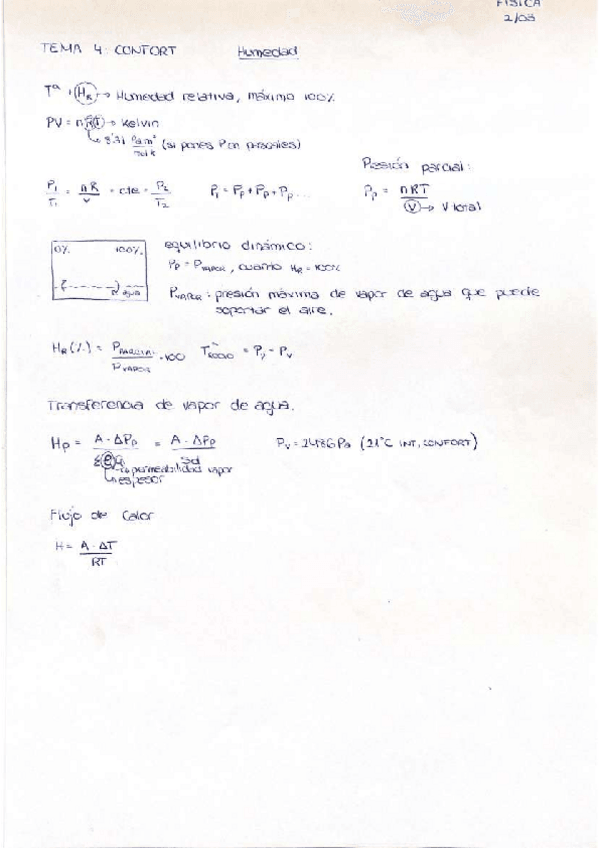 FISICA
2/03
TEMA 4: CONFORT Humedad
Tª, HR → Humedad relativa, máximo 100%
PV = nRT → Kelvin
↳ 8'31 Pa·m³/mol·K (si pones P en pascales)
Presión parcial:
P1/T1 = nR/V = cte = P2/T2 Pi = Pp + Pp + Pp ... Pp = nRT/V → V total
0% 100%
agua
equilibrio dinámico:
Pp = PVAPOR, cuando HR = 100%
PVAPOR: presión máxima de vapor de agua que puede
soportar el aire.
HR(%) = PPARCIAL/PVAPOR · 100
Transferencia de vapor de agua.
Hp = A·ΔPp = A·ΔPp/Sd Pv = 2486Pa (21°C INT, CONFORT)
↳ permeabilidad vapor
↳ espesor
Flujo de Calor
H = A·ΔT/RT